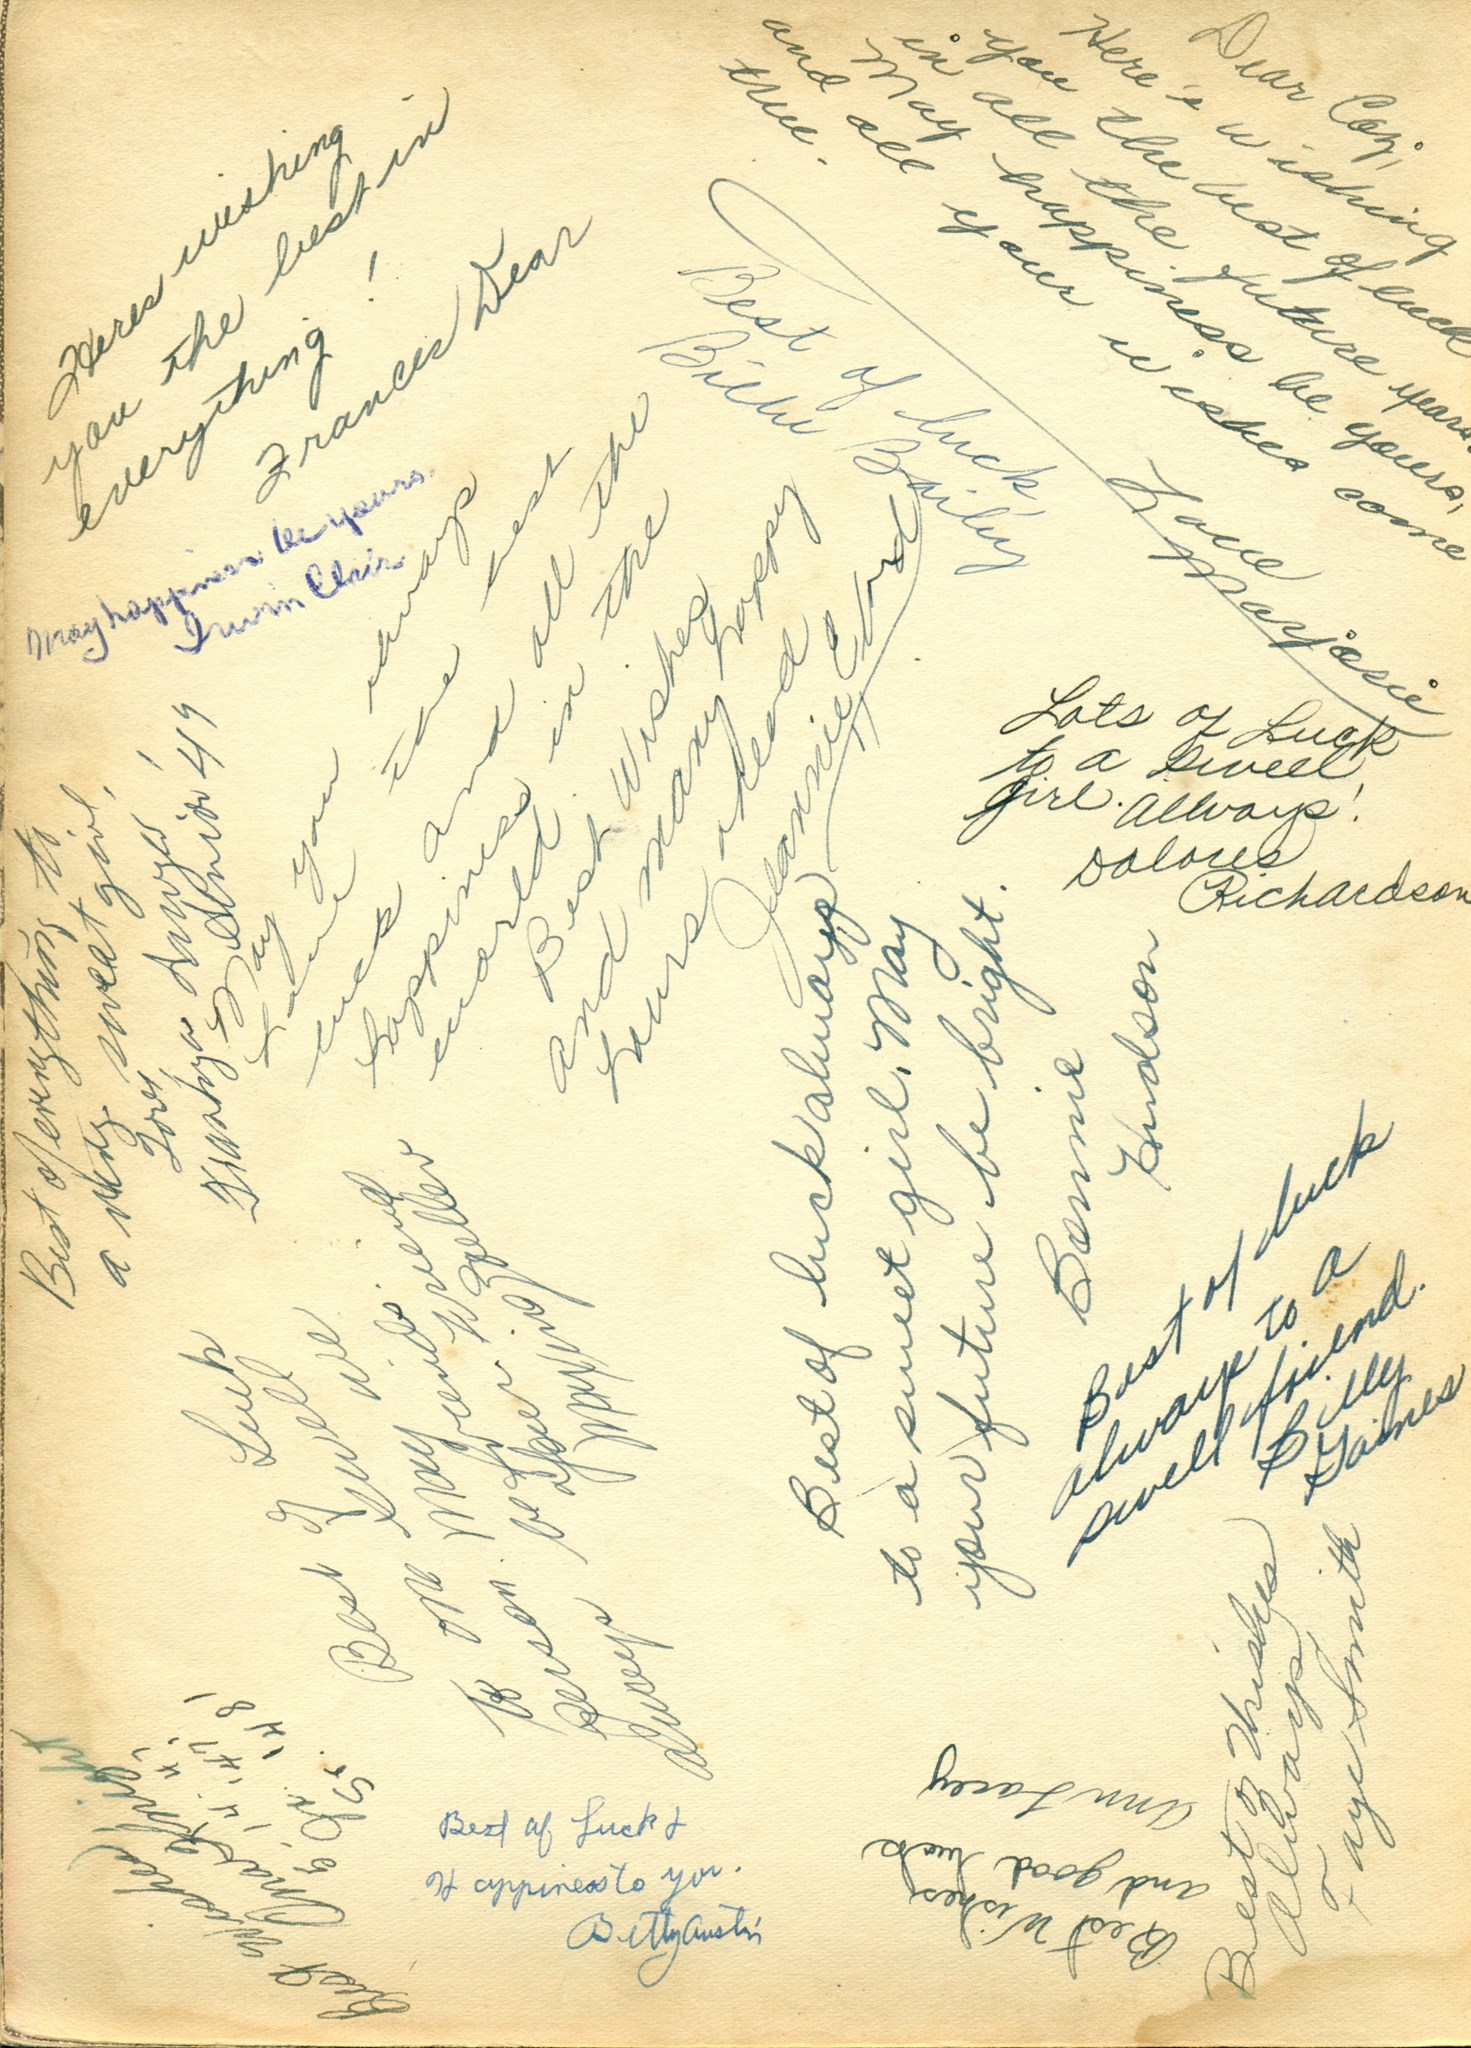 Heres wishing
you the best in
everything!
Frances Dear
Dear Cozi,
Here's wishing
you the best of luck
in all the future years.
May happiness be yours,
and all your wishes come
true.
Love
Marjorie
Best of luck,
Billie Bailey
May happiness be yours.
Irwin Clair
Lots of Luck
to a sweet
girl. Always!
Dolores
Richardson
Best of everything to
a very sweet girl,
Love, Always!
Senior 49
May you always
have the best
luck and all the
happiness in the
world.
Best Wishes
and many happy
hours ahead
Jeannie
Best of luck always
to a sweet girl. May
your future be bright.
Bonnie
Hudson
Best of luck
always to a
swell friend.
Billy
Gaines
Best Luck
To
person
always
Best Wishes
'47
'48
Best of Luck &
Happiness to you.
Betty Austin
Best Wishes
and good luck
Ann Lacey
Best of Wishes
Always
Faye Smith